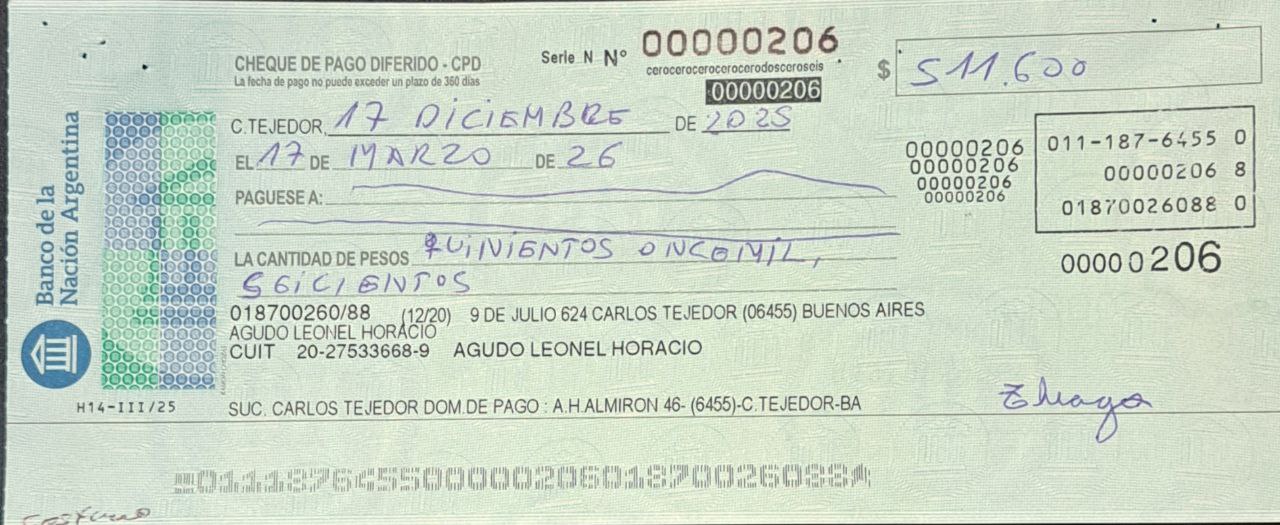 CHEQUE DE PAGO DIFERIDO - CPD
La fecha de pago no puede exceder un plazo de 360 días
Serie N Nº 00000206
cerocerocerocerocerodosceroseis
00000206
$ 511.600
C.TEJEDOR, 17 DICIEMBRE DE 2025
EL 17 DE MARZO DE 26
PAGUESE A:
LA CANTIDAD DE PESOS QUINIENTOS ONCEMIL,
SEICIENTOS
00000206
00000206
00000206
00000206
011-187-6455 0
00000206 8
01870026088 0
00000206
018700260/88 (12/20) 9 DE JULIO 624 CARLOS TEJEDOR (06455) BUENOS AIRES
AGUDO LEONEL HORACIO
CUIT 20-27533668-9 AGUDO LEONEL HORACIO
SUC. CARLOS TEJEDOR DOM.DE PAGO : A.H.ALMIRON 46- (6455)-C.TEJEDOR-BA
Banco de la
Nación Argentina
H14-III/25
01118764550000020601870026088